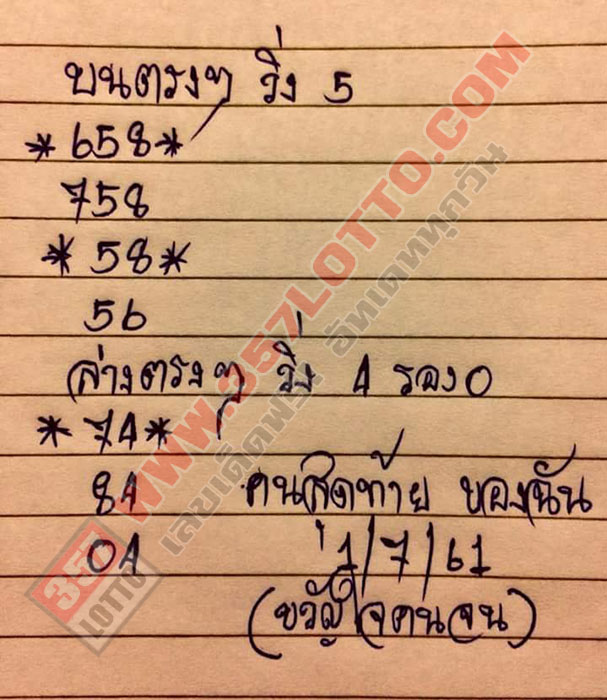 บนตรงๆ วิ่ง 5
*658*
758
*58*
56
ล่างตรงๆ วิ่ง 4 รอง 0
*74*
84 คนสุดท้าย ของฉัน
04 1/7/61
(ขวัญใจคนจน)
WWW.357LOTTO.COM
เลขเด็ดฟรี อัพเดททุกวัน
357
LOTTO